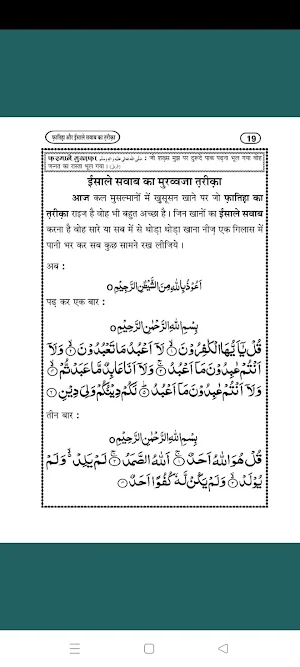 फ़ातिहा और ईसाले सवाब का त़रीक़ा
19
फ़रमाने मुस्त़फ़ा صلى الله تعالى عليه واله وسلم : जो शख़्स मुझ पर दुरूदे पाक पढ़ना भूल गया वोह
जन्नत का रास्ता भूल गया ।
ईसाले सवाब का मुरव्वजा त़रीक़ा
आज कल मुसल्मानों में ख़ुसूसन खाने पर जो फ़ातिह़ा का
त़रीक़ा राइज है वोह भी बहुत अच्छा है । जिन खानों का ईसाले सवाब
करना है वोह सारे या सब में से थोड़ा थोड़ा खाना नीज़ एक गिलास में
पानी भर कर सब कुछ सामने रख लीजिये ।
अब :
اَعُوْذُ بِاللّٰهِ مِنَ الشَّيْطٰنِ الرَّجِيْمِ ○
पढ़ कर एक बार :
بِسْمِ اللّٰهِ الرَّحْمٰنِ الرَّحِيْمِ ○
قُلْ يٰۤاَيُّهَا الْكٰفِرُوْنَ ۙ﴿۱﴾ لَاۤ اَعْبُدُ مَا تَعْبُدُوْنَ ۙ﴿۲﴾ وَلَاۤ
اَنْتُمْ عٰبِدُوْنَ مَاۤ اَعْبُدُ ۚ﴿۳﴾ وَلَاۤ اَنَا عَابِدٌ مَّا عَبَدْتُّمْ ۙ﴿۴﴾
وَلَاۤ اَنْتُمْ عٰبِدُوْنَ مَاۤ اَعْبُدُ ؕ﴿۵﴾ لَكُمْ دِيْنُكُمْ وَلِيَ دِيْنِ ﴿۶﴾
तीन बार :
بِسْمِ اللّٰهِ الرَّحْمٰنِ الرَّحِيْمِ ○
قُلْ هُوَ اللّٰهُ اَحَدٌ ۚ﴿۱﴾ اَللّٰهُ الصَّمَدُ ۚ﴿۲﴾ لَمْ يَلِدْ ۙ وَلَمْ
يُوْلَدْ ۙ﴿۳﴾ وَلَمْ يَكُنْ لَّهٗ كُفُوًا اَحَدٌ ﴿۴﴾